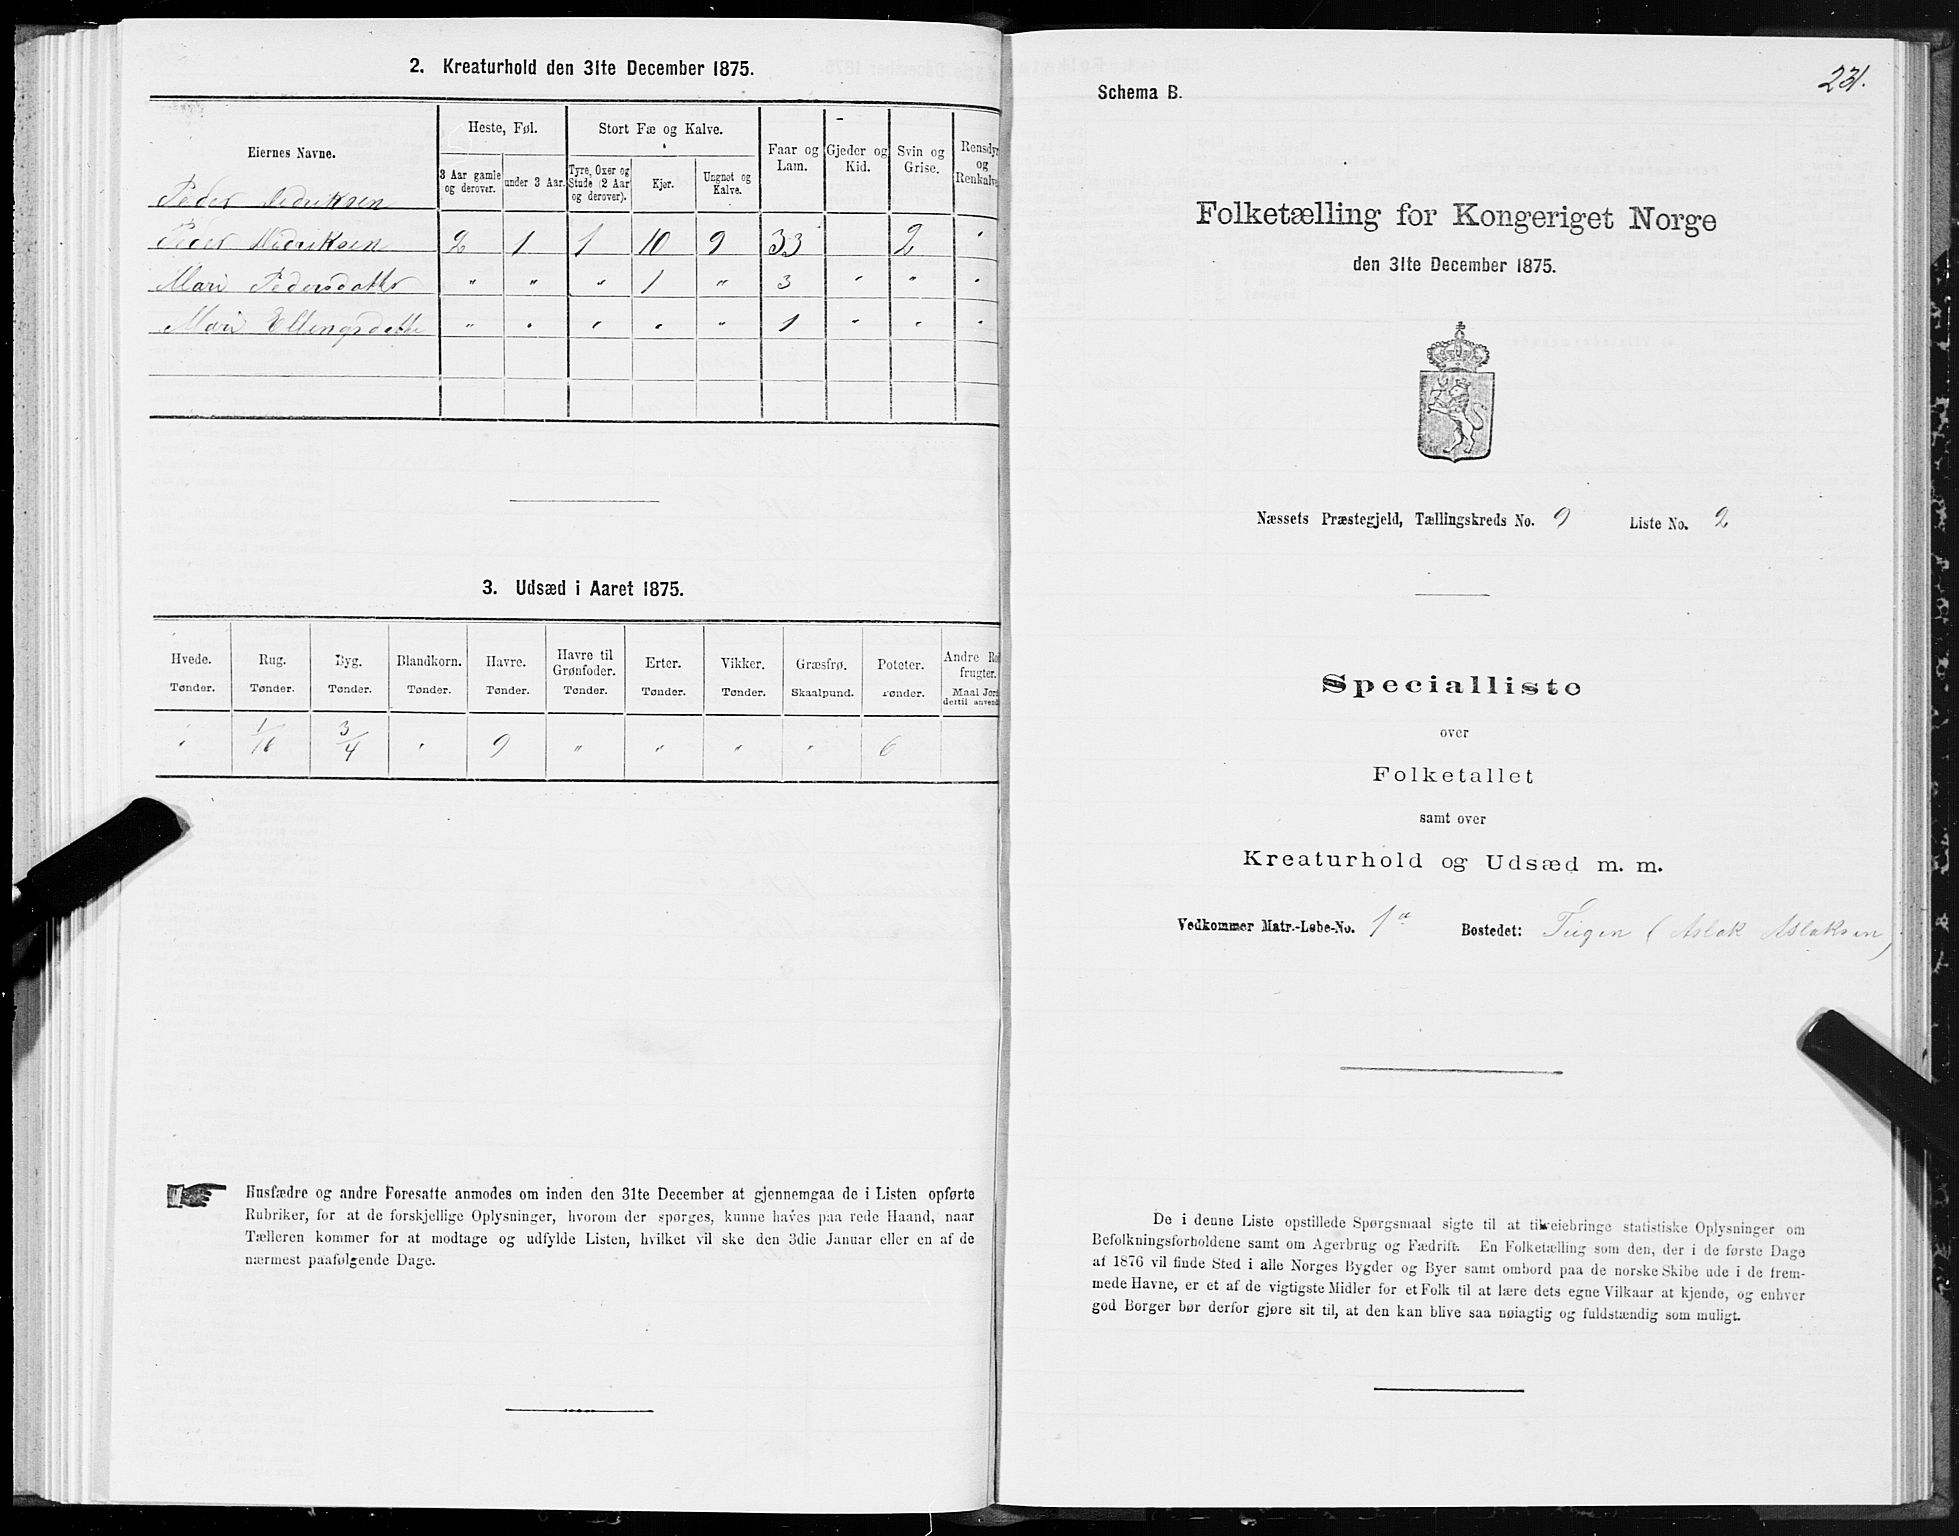 2. Kreaturhold den 31te December 1875.
Eiernes Navne.
Heste, Føl.
Stort Fæ og Kalve.
Faar og Lam.
Gjeder og Kid.
Svin og Grise.
Rensdyr og Renkalve
3 Aar gamle og derover.
under 3 Aar.
Tyre, Oxer og Stude (2 Aar og derover).
Kjør.
Ungnøt og Kalve.
Peder
Peder 2 1 1 10 9 33 2 "
Mari Pedersdatter " " " 1 " 3 " " "
Mari Ellingsdatter " " " " " 1 " " "
3. Udsæd i Aaret 1875.
Hvede. Rug. Byg. Blandkorn. Havre. Havre til Grønfoder. Erter. Vikker. Græsfrø. Poteter. Andre Ro frugter.
Tønder. Tønder. Tønder. Tønder. Tønder. Tønder. Tønder. Tønder. Skaalpund. Tønder. Maal Jord dertil anvend
" 1/16 3/4 " 9 " " " " 6
Husfædre og andre Foresatte anmodes om inden den 31te December at gjennemgaa de i Listen opførte
Rubriker, for at de forskjellige Oplysninger, hvorom der spørges, kunne haves paa rede Haand, naar
Tælleren kommer for at modtage og udfylde Listen, hvilket vil ske den 3die Januar eller en af de
nærmest paafølgende Dage.
231.
Schema B.
Folketælling for Kongeriget Norge
den 31te December 1875.
Næssets Præstegjeld, Tællingskreds No. 9 Liste No. 2
Specialliste
over
Folketallet
samt over
Kreaturhold og Udsæd m. m.
Vedkommer Matr.-Løbe-No. 1a Bostedet: Teigen (Aslak Aslaksen)
De i denne Liste opstillede Spørgsmaal sigte til at tilveiebringe statistiske Oplysninger om
Befolkningsforholdene samt om Agerbrug og Fædrift. En Folketælling som den, der i de første Dage
af 1876 vil finde Sted i alle Norges Bygder og Byer samt ombord paa de norske Skibe ude i de frem-
mede Havne, er et af de vigtigste Midler for et Folk til at lære dets egne Vilkaar at kjende, og enhver
god Borger bør derfor gjøre sit til, at den kan blive saa nøiagtig og fuldstændig som muligt.